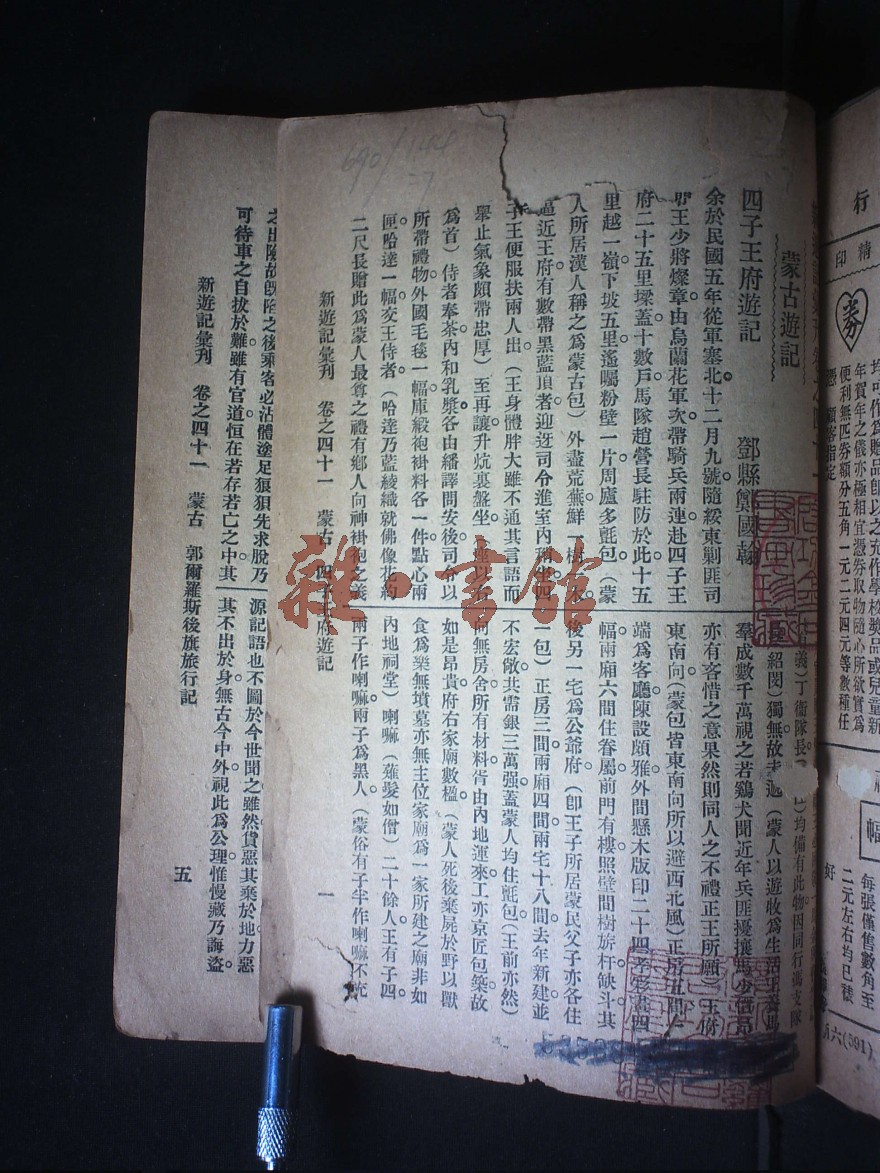 蒙古遊記
四子王府遊記　鄧縣鄭國翰
余於民國五年從軍塞北十二月九號隨綏東剿匪司
王少將燦章由烏蘭花軍次帶騎兵兩連赴四子王
府二十五里墚蓋十數戶馬隊趙營長駐防於此十五
里越一嶺下坡五里遙囑粉壁一片周廬多氈包（蒙
人所居漢人稱之爲蒙古包）外盡荒蕪鮮一樹木
逼近王府有數帶黑藍頂者迎迓司令進室內稍坐四
子王便服扶兩人出（王身體胖大雖不通其言語而
舉止氣象頗帶忠厚）至再讓升炕裏盤坐（座以右
爲首）侍者奉茶內和乳漿各由繙譯問安後司令以
所帶禮物外國毛毯一幅庫緞袍褂料各一件點心兩
匣哈達一幅交王侍者（哈達乃藍綾織就佛像花約
二尺長贈此爲蒙人最尊之禮有鄉人向神褂袍之義
義）丁衛隊長
均備有此物因同行馮支隊
紹閔）獨無故
（蒙人以遊收爲生活王養馬
羣成數千萬視之若鷄犬聞近年兵匪擾攘馬少價昂
亦有客惜之意果然則同人之不禮正王所願）王府
東南向（蒙包皆東南向所以避西北風）正房五間
端爲客廳陳設頗雅外間懸木版印二十四孝彩畫四
幅兩廂六間住眷屬前門有樓照壁間樹旂杆缺斗其
後另一宅爲公爺府（卽王子所居蒙民父子亦各住
一包）正房三間兩廂四間兩宅十八間去年新建並
不宏敞共需銀三萬强蓋蒙人均住氈包（王前亦然）
向無房舍所有材料皆由內地運來工亦京匠包築故
如是昂貴府右家廟數楹（蒙人死後棄屍於野以獸
食爲樂無墳墓亦無主位家廟爲一家所建之廟非如
內地祠堂）喇嘛（薙髮如僧）二十餘人王有子四
兩子作喇嘛兩子爲黑人（蒙俗有子半作喇嘛不充
新遊記彙刊　卷之四十一　蒙古　四子王府遊記　一
之出險故旣陷之後乘客必沾體塗足狼狽先求脫乃
可待車之自拔於難雖有官道恒在若存若亡之中其
源記語也不圖於今世聞之雖然貨惡其棄於地力惡
其不出於身無古今中外視此爲公理惟慢藏乃誨盜
新遊記彙刊　卷之四十一　蒙古　郭爾羅斯後旗旅行記　五
行
精印
券
均可作爲贈品卽以之充作學校獎品或兒童新
年賀年之儀亦極相宜憑券取物隨心所欲實爲
便利無匹券額分五角一元二元四元等數種任
憑顧客指定
幅
每張僅售數角至
二元左右均已裱
好
(591)六
690/144
雜·書館